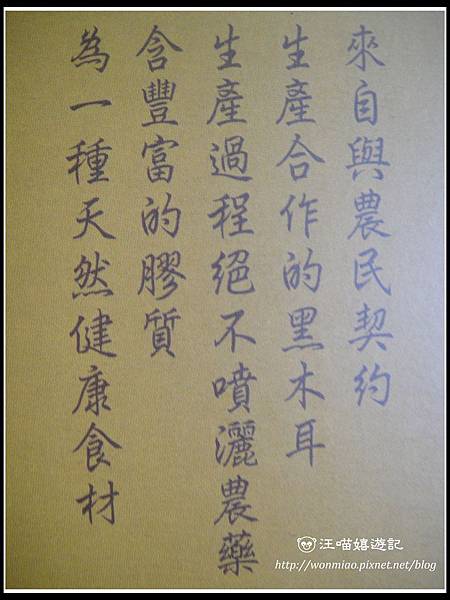 來自與農民契約
生產合作的黑木耳
生產過程絕不噴灑農藥
含豐富的膠質
為一種天然健康食材
汪喵嬉遊記
http://wonmiao.pixnet.net/blog